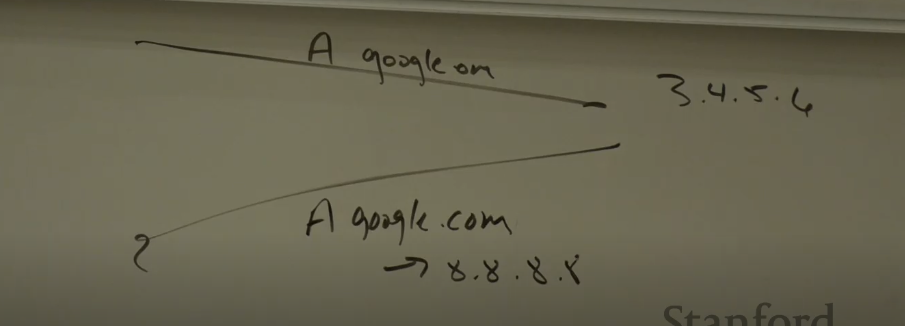 A google om
3.4.5.6
A google.com
→ 8.8.8.8
Stanford